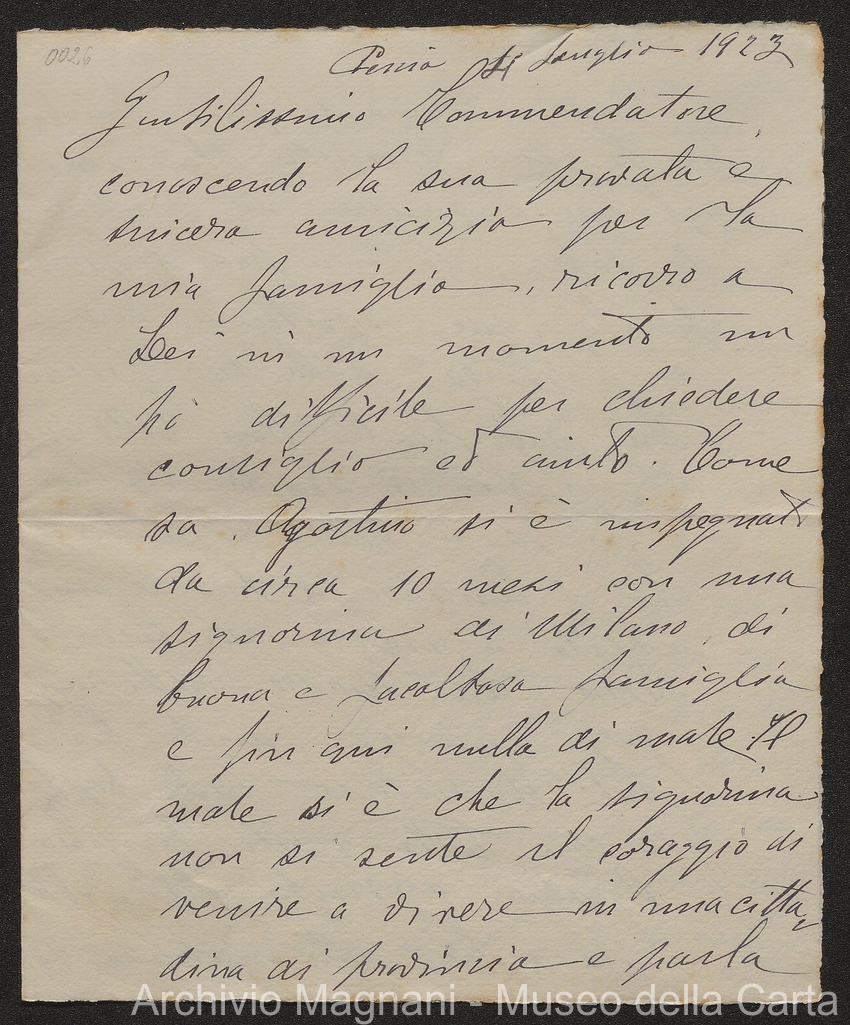 0026
Pescia 4 Luglio 1923
Gentilissimo Commendatore,
conoscendo la sua provata e
sincera amicizia per la
mia famiglia, ricorro a
Lei in un momento un
pò difficile per chiedere
consiglio ed aiuto. Come
sa, Agostino si è impegnato
da circa 10 mesi con una
signorina di Milano, di
buona e facoltosa famiglia
e fin qui nulla di male. Il
male si è che la signorina
non si sente il coraggio di
venire a vivere in una citta
dina di provincia e parla
Archivio Magnani - Museo della Carta